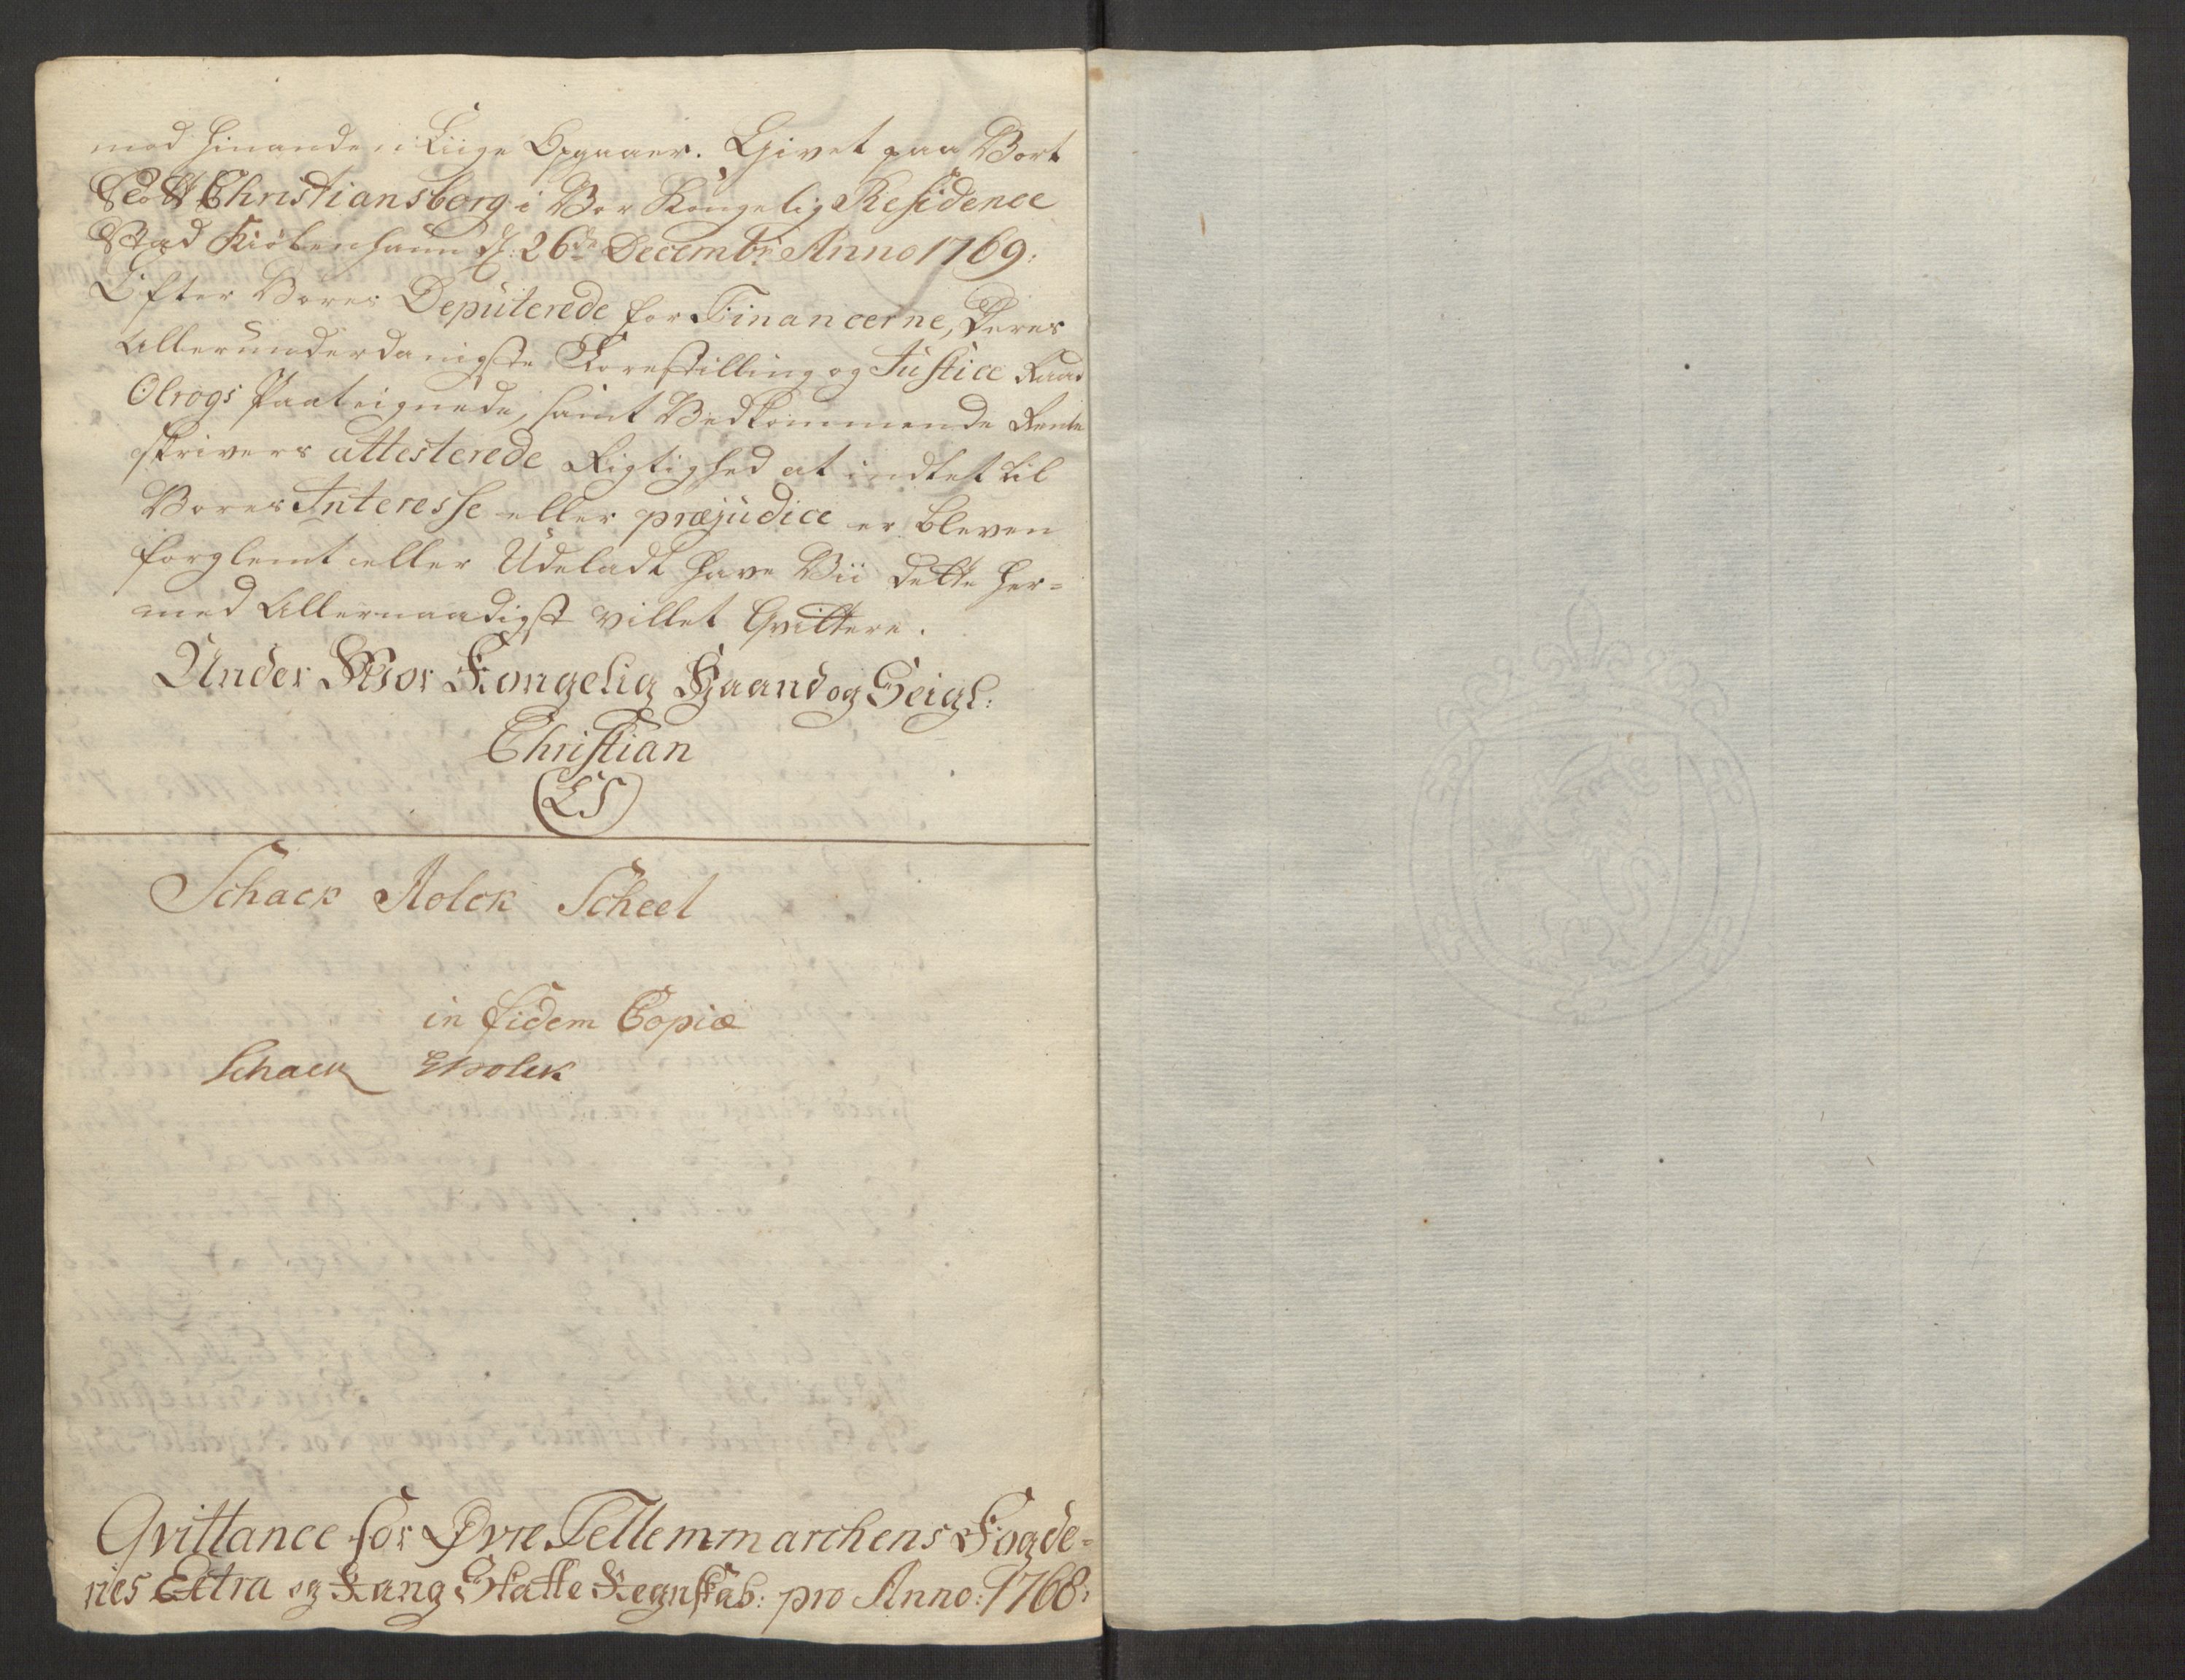 mod hinanden i Liige Opgaaer. Givet paa Vort
Slott Christiansborg i Vor Kongelig Residence
Stad Kiöbenhaun d: 26de Decembr Anno 1769:
Efter Vores Deputerede for Financerne, Deres
Allerunderdanigste Forestilling og Justice Raad
Olrogs Paateignede, samt Vedkommende Rente
skrivers attesterede Rigtighed at indtet til
Vores Interesse eller præjudice er bleven
forglemt eller Udeladt have Vii dette her=
med Allernaadigst villet Qvittere.
Under Vor Kongelig Haand og Seigl:
Christian
(LS)
Schack Holck Scheel
in fidem Copiæ
Schack Holck
Qvittance for Øvre Tellemmarchens Fogde=
ries Extra og Rang Skatte Regnskab: pro Anno: 1768: